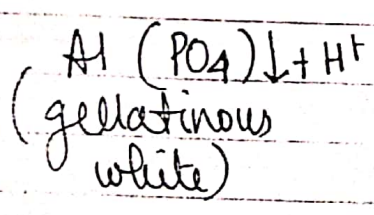 Al (PO4)↓ + H+
(gellatinous
white)